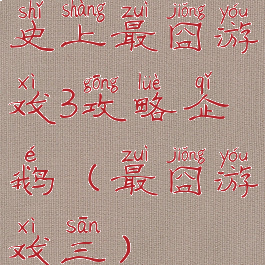 shǐ shàng zuì jiǒng yóu
史上最囧游
xì gōng lüè qǐ
戏3攻略企
é zuì jiǒng yóu
鹅（最囧游
xì sān
戏三）